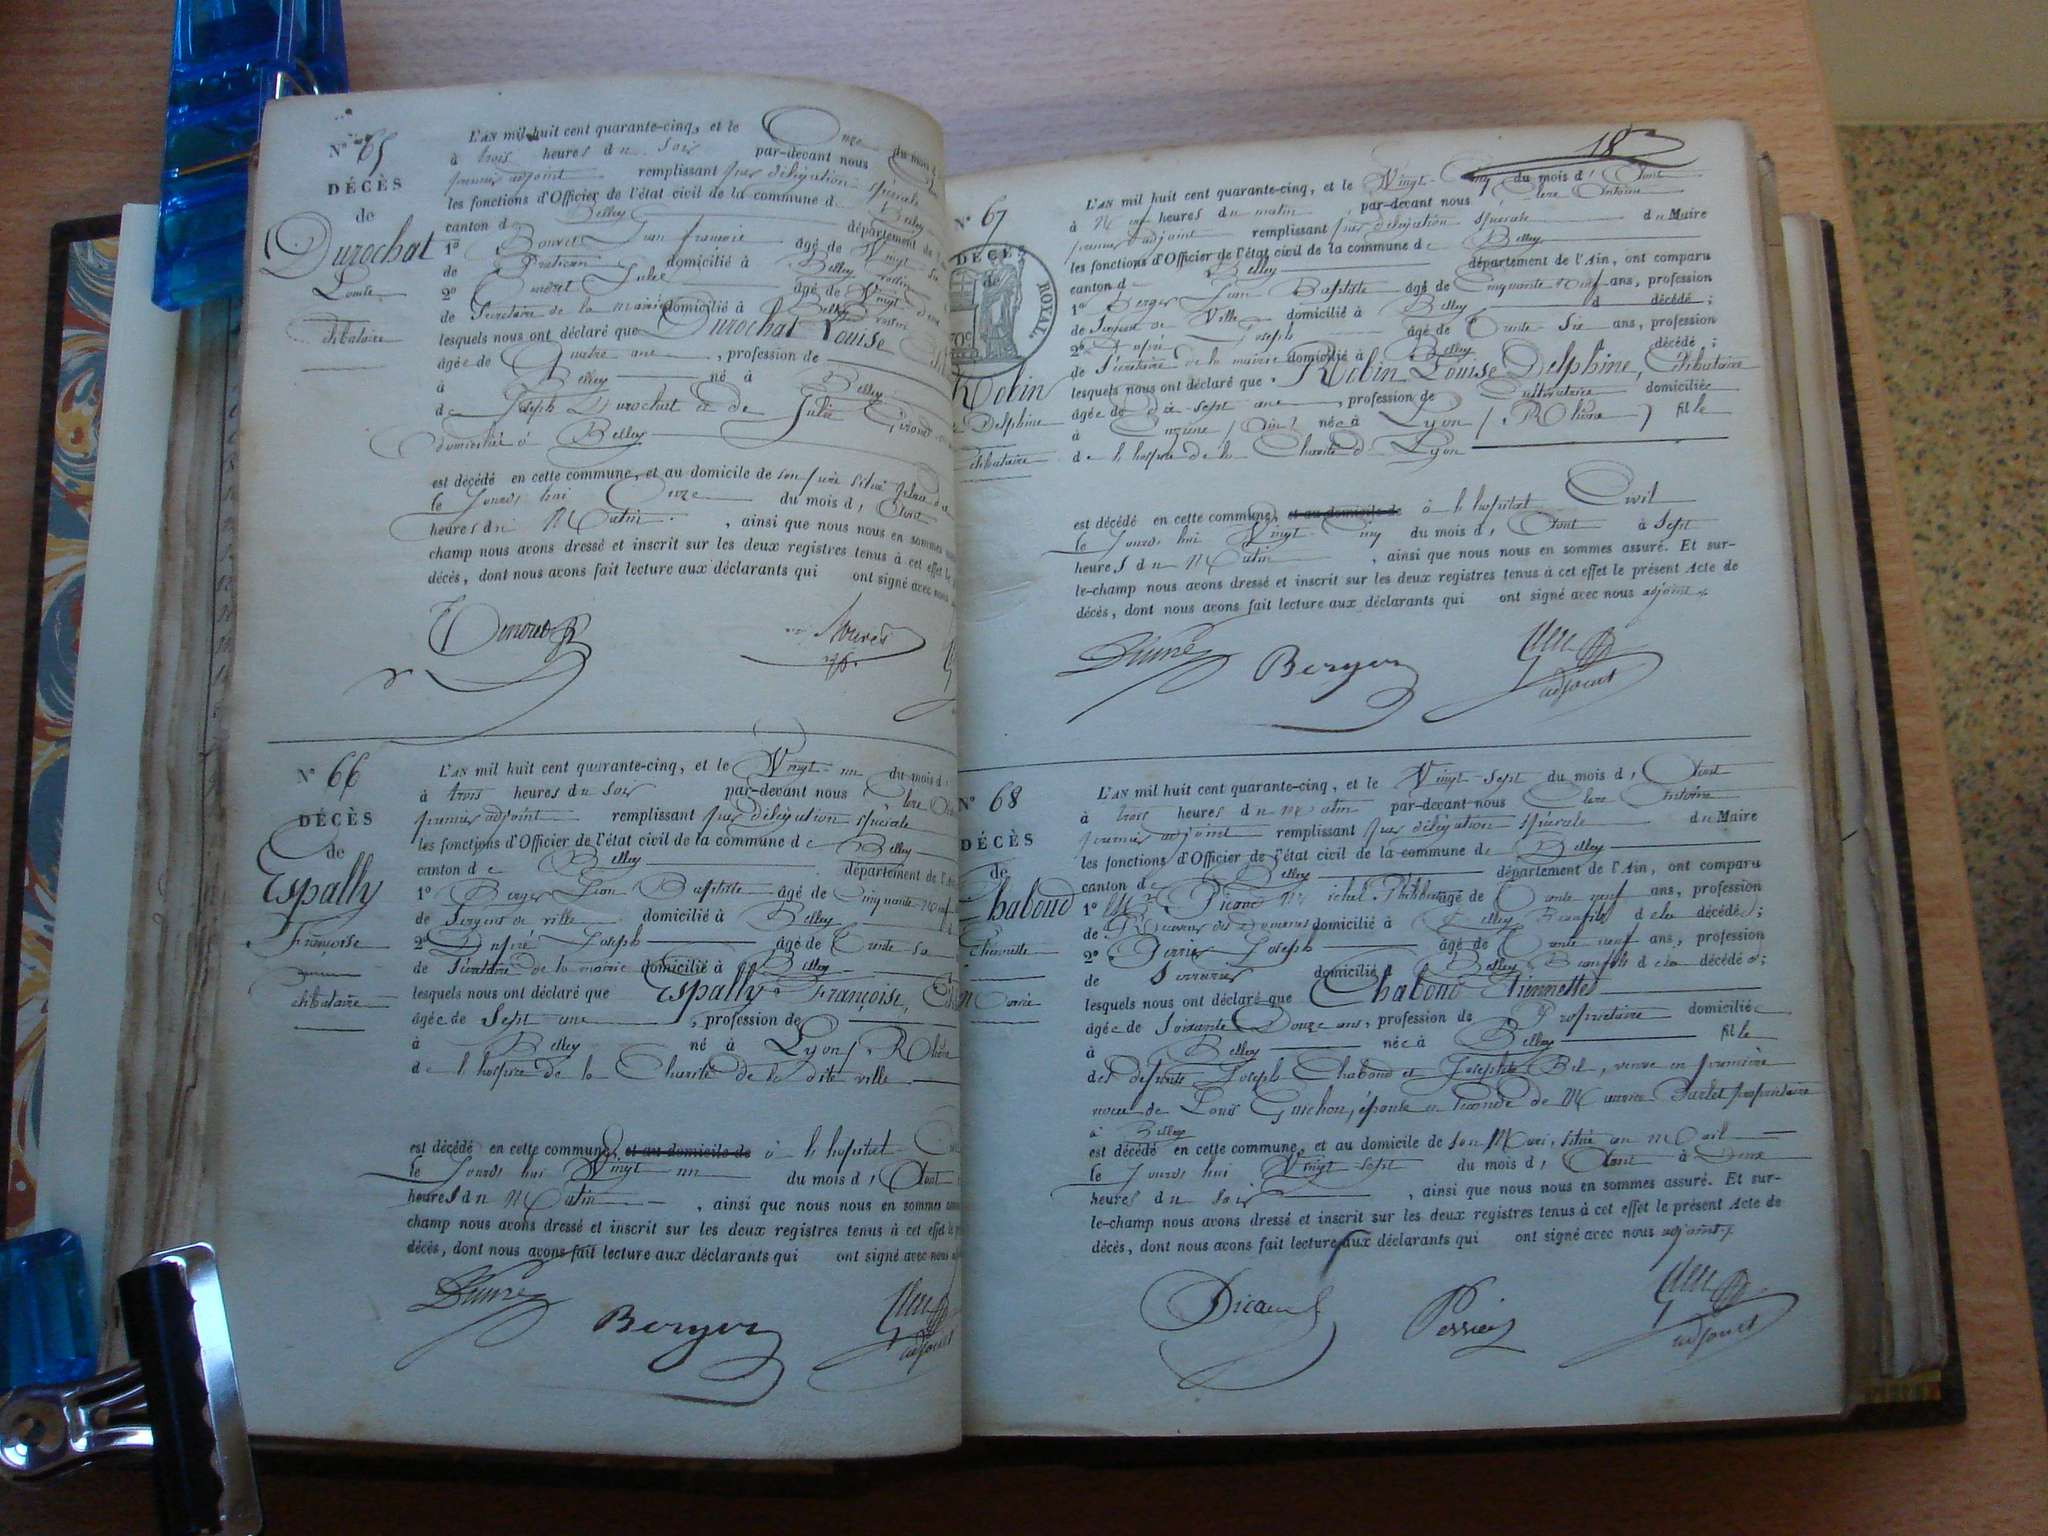 N° 65
DÉCÈS
de
Durochat
Louise
Célibataire
L'AN mil huit cent quarante-cinq, et le Onze du mois d
à trois heures du Soir par-devant nous
premier adjoint remplissant par délégation spéciale
les fonctions d'Officier de l'état civil de la commune d Belley
canton d Belley département de
1° Bouvet Jean françois âgé de Vingt
de Praticien domicilié à Belley voisin
2° Julie âgé de Vingt
de Secrétaire de la mairie domicilié à Belley voisin
lesquels nous ont déclaré que Durochat Louise
âgée de Quatre ans, profession de
à Belley né à Belley
de Joseph Durochat et de Julie
domiciliés à Belley
est décédé en cette commune, et au domicile de son père situé place
le Jourd'hui Onze du mois d'Aout
heures du Matin, ainsi que nous nous en sommes
champ nous avons dressé et inscrit sur les deux registres tenus à cet effet le
décès, dont nous avons fait lecture aux déclarants qui ont signé avec nous
N° 66
DÉCÈS
de
Espally
Françoise
Célibataire
L'AN mil huit cent quarante-cinq, et le Vingt-un du mois d
à trois heures du Soir par-devant nous Clerc
premier adjoint remplissant par délégation spéciale
les fonctions d'Officier de l'état civil de la commune de Belley
canton de Belley département de l'A
1° Berger Jean Baptiste âgé de Cinquante Neuf
de Sergent de ville domicilié à Belley
2° Dupré Joseph âgé de Trente six
de Secrétaire de la mairie domicilié à Belley
lesquels nous ont déclaré que Espally Françoise,
âgée de Sept ans, profession de
à Belley né à Lyon, Rhône
de l'hospice de la Charité de la dite ville
est décédé en cette commune, et au domicile de à l'hopital
le Jourd'hui Vingt un du mois d'Aout
heures du Matin, ainsi que nous nous en sommes
champ nous avons dressé et inscrit sur les deux registres tenus à cet effet le
décès, dont nous avons fait lecture aux déclarants qui ont signé avec nous
Dupré Berger adjoint
18
N° 67
DÉCÈS
de
ROYAL.
Robin
Delphine
Célibataire
L'AN mil huit cent quarante-cinq, et le Vingt-Cinq du mois d'Aout
à Neuf heures du matin par-devant nous Clerc Antoine
premier adjoint remplissant par délégation spéciale du Maire
les fonctions d'Officier de l'état civil de la commune de Belley
canton de Belley département de l'Ain, ont comparu
1° Berger Jean Baptiste âgé de Cinquante Neuf ans, profession
de Sergent de Ville domicilié à Belley d décédé;
2° Dupré Joseph âgé de Trente Six ans, profession
de Secrétaire de la mairie domicilié à Belley décédé;
lesquels nous ont déclaré que Robin Louise Delphine, Célibataire
âgée de Dix-sept ans, profession de domiciliée
à (Ain) née à Lyon (Rhône) fille
de l'hospice de la Charité d Lyon
est décédé en cette commune, et au domicile de à l'hopital Civil
le Jourd'hui Vingt Cinq du mois d'Aout à Sept
heures du Matin, ainsi que nous nous en sommes assuré. Et sur-
le-champ nous avons dressé et inscrit sur les deux registres tenus à cet effet le présent Acte de
décès, dont nous avons fait lecture aux déclarants qui ont signé avec nous adjoint.
Dupré Berger adjoint
N° 68
DÉCÈS
de
Chaboud
Etiennette
L'AN mil huit cent quarante-cinq, et le Vingt-Sept du mois d'Aout
à trois heures du Matin par-devant nous Clerc Antoine
premier adjoint remplissant par délégation spéciale du Maire
les fonctions d'Officier de l'état civil de la commune de Belley
canton de Belley département de l'Ain, ont comparu
1° Picaud Michel Philibert âgé de Trente neuf ans, profession
de Receveur des Domaines domicilié à Belley Beaufils d ela décédée;
2° Perrier Joseph âgé de Trente neuf ans, profession
de Serrurier domicilié Belley Beaufils d ela décédée;
lesquels nous ont déclaré que Chaboud Etiennette
âgée de Soixante Douze ans, profession de Propriétaire domiciliée
à Belley née à Belley fille
de défunts Joseph Chaboud et Josephte Bel, veuve en première
noce de Louis Guichon, épouse en seconde de Maurice Burlet propriétaire
à Belley
est décédé en cette commune, et au domicile de son Mari, situé au Mail
le Jourd'hui Vingt-sept du mois d'Aout à Deux
heures du Soir, ainsi que nous nous en sommes assuré. Et sur-
le-champ nous avons dressé et inscrit sur les deux registres tenus à cet effet le présent Acte de
décès, dont nous avons fait lecture aux déclarants qui ont signé avec nous adjoint.
Picaud Perrier adjoint